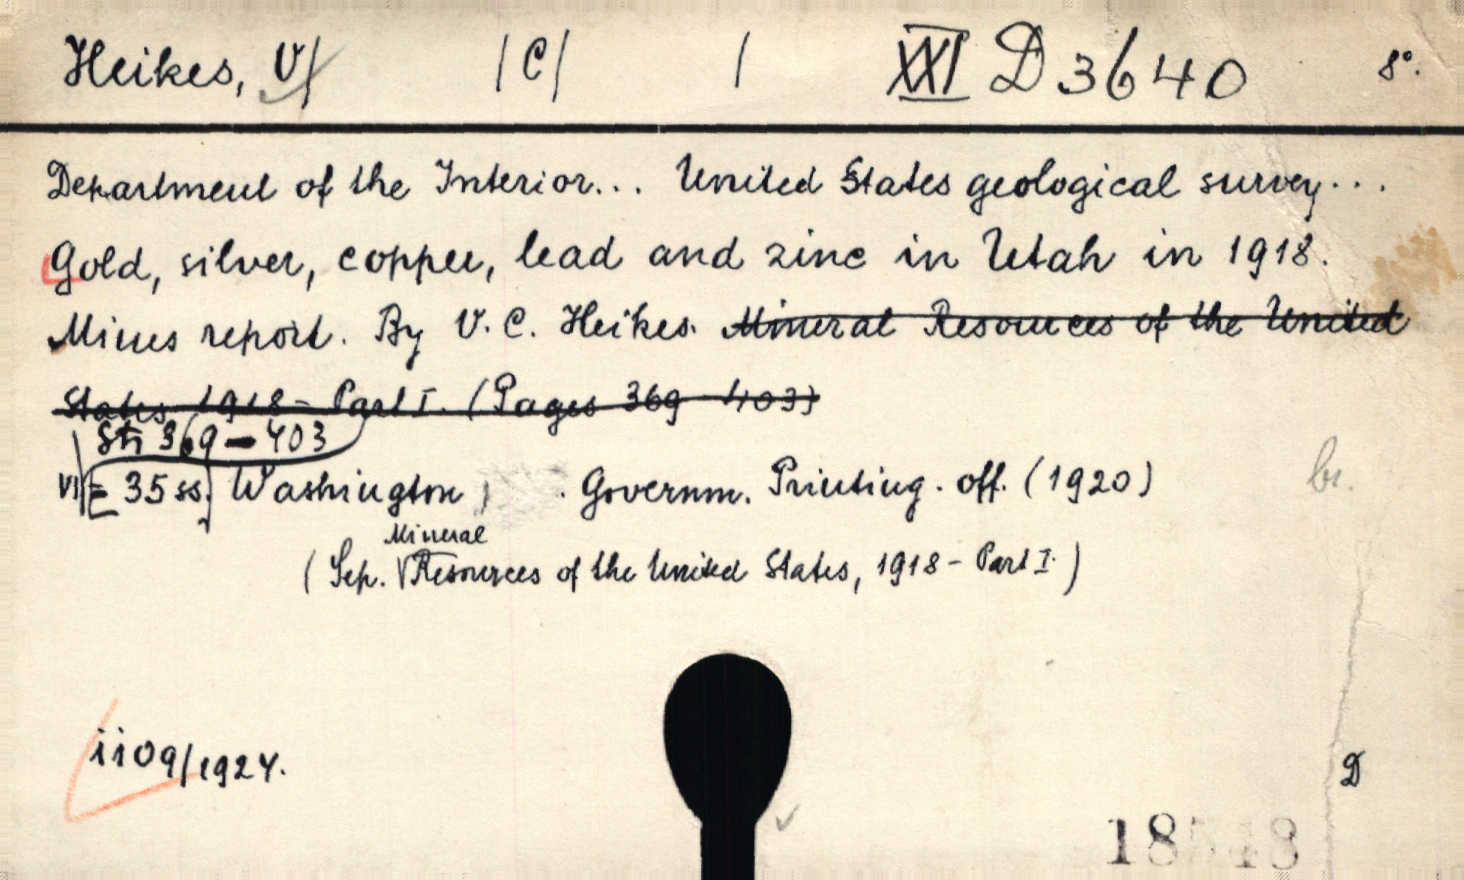 Heikes, V/ /C/ / XXI D 3640 8°.
Department of the Interior... United States geological survey...
Gold, silver, copper, lead and zinc in Utah in 1918.
Mines report. By V. C. Heikes. Mineral Resources of the United
States 1918 - Part I. (Pages 369-403)
Str 369-403
VI = 35 ss. Washington, . Governm. Printing. off. (1920) br.
Mineral
(Sep. Resources of the United States, 1918 - Part I.)
1109/1924.
D